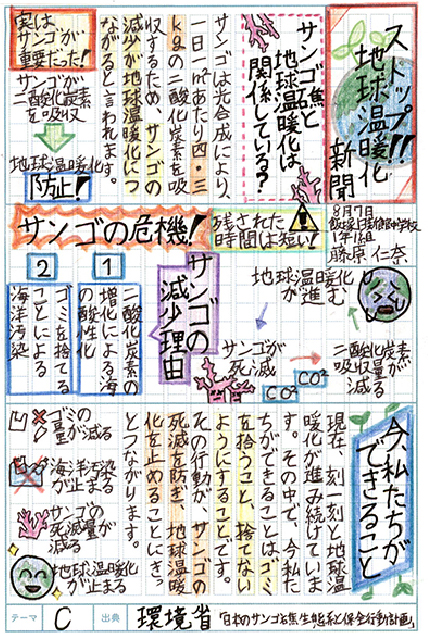 ストップ!!
地球温暖化
新聞
8月7日
1年1組
藤原 仁奈
サンゴ礁と
地球温暖化は
関係している?
サンゴは光合成により、
一日一㎡あたり四・三
kgの二酸化炭素を吸
収するため、サンゴの
減少が地球温暖化につ
ながると言われます。
実は
サンゴが
重要だった!
サンゴが
二酸化炭素
を吸収
地球温暖化
防止!
サンゴの危機!
残された
時間は短い!
地球温暖化
が進む
二酸化炭素
吸収量が
減る
CO²
CO²
サンゴが
死滅
サンゴの
減少理由
1
二酸化炭素の
増化による海
の酸性化
2
ゴミを捨てる
ことによる
海洋汚染
今、私たちが
できること
現在、刻一刻と地球温
暖化が進み続けていま
す。その中で、今私た
ちができることはゴミ
を拾うこと、捨てない
ようにすることです。
その行動が、サンゴの
死滅を防ぎ、地球温暖
化を止めることにきっ
とつながります。
ゴミの
量が減る
海洋汚染
が止まる
サンゴの
死滅量が
減る
地球温暖化
が止まる
テーマ
C
出典
環境省「日本のサンゴ礁生態系と保全行動計画」